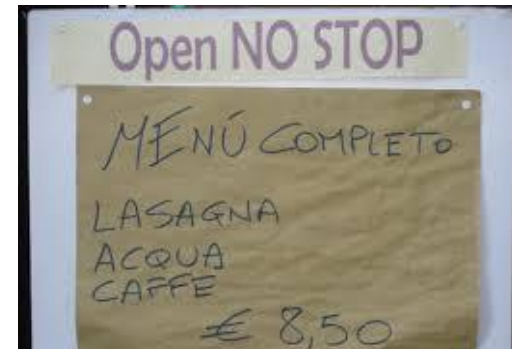 Open NO STOP
MENÚ COMPLETO
LASAGNA
ACQUA
CAFFE
€ 8,50